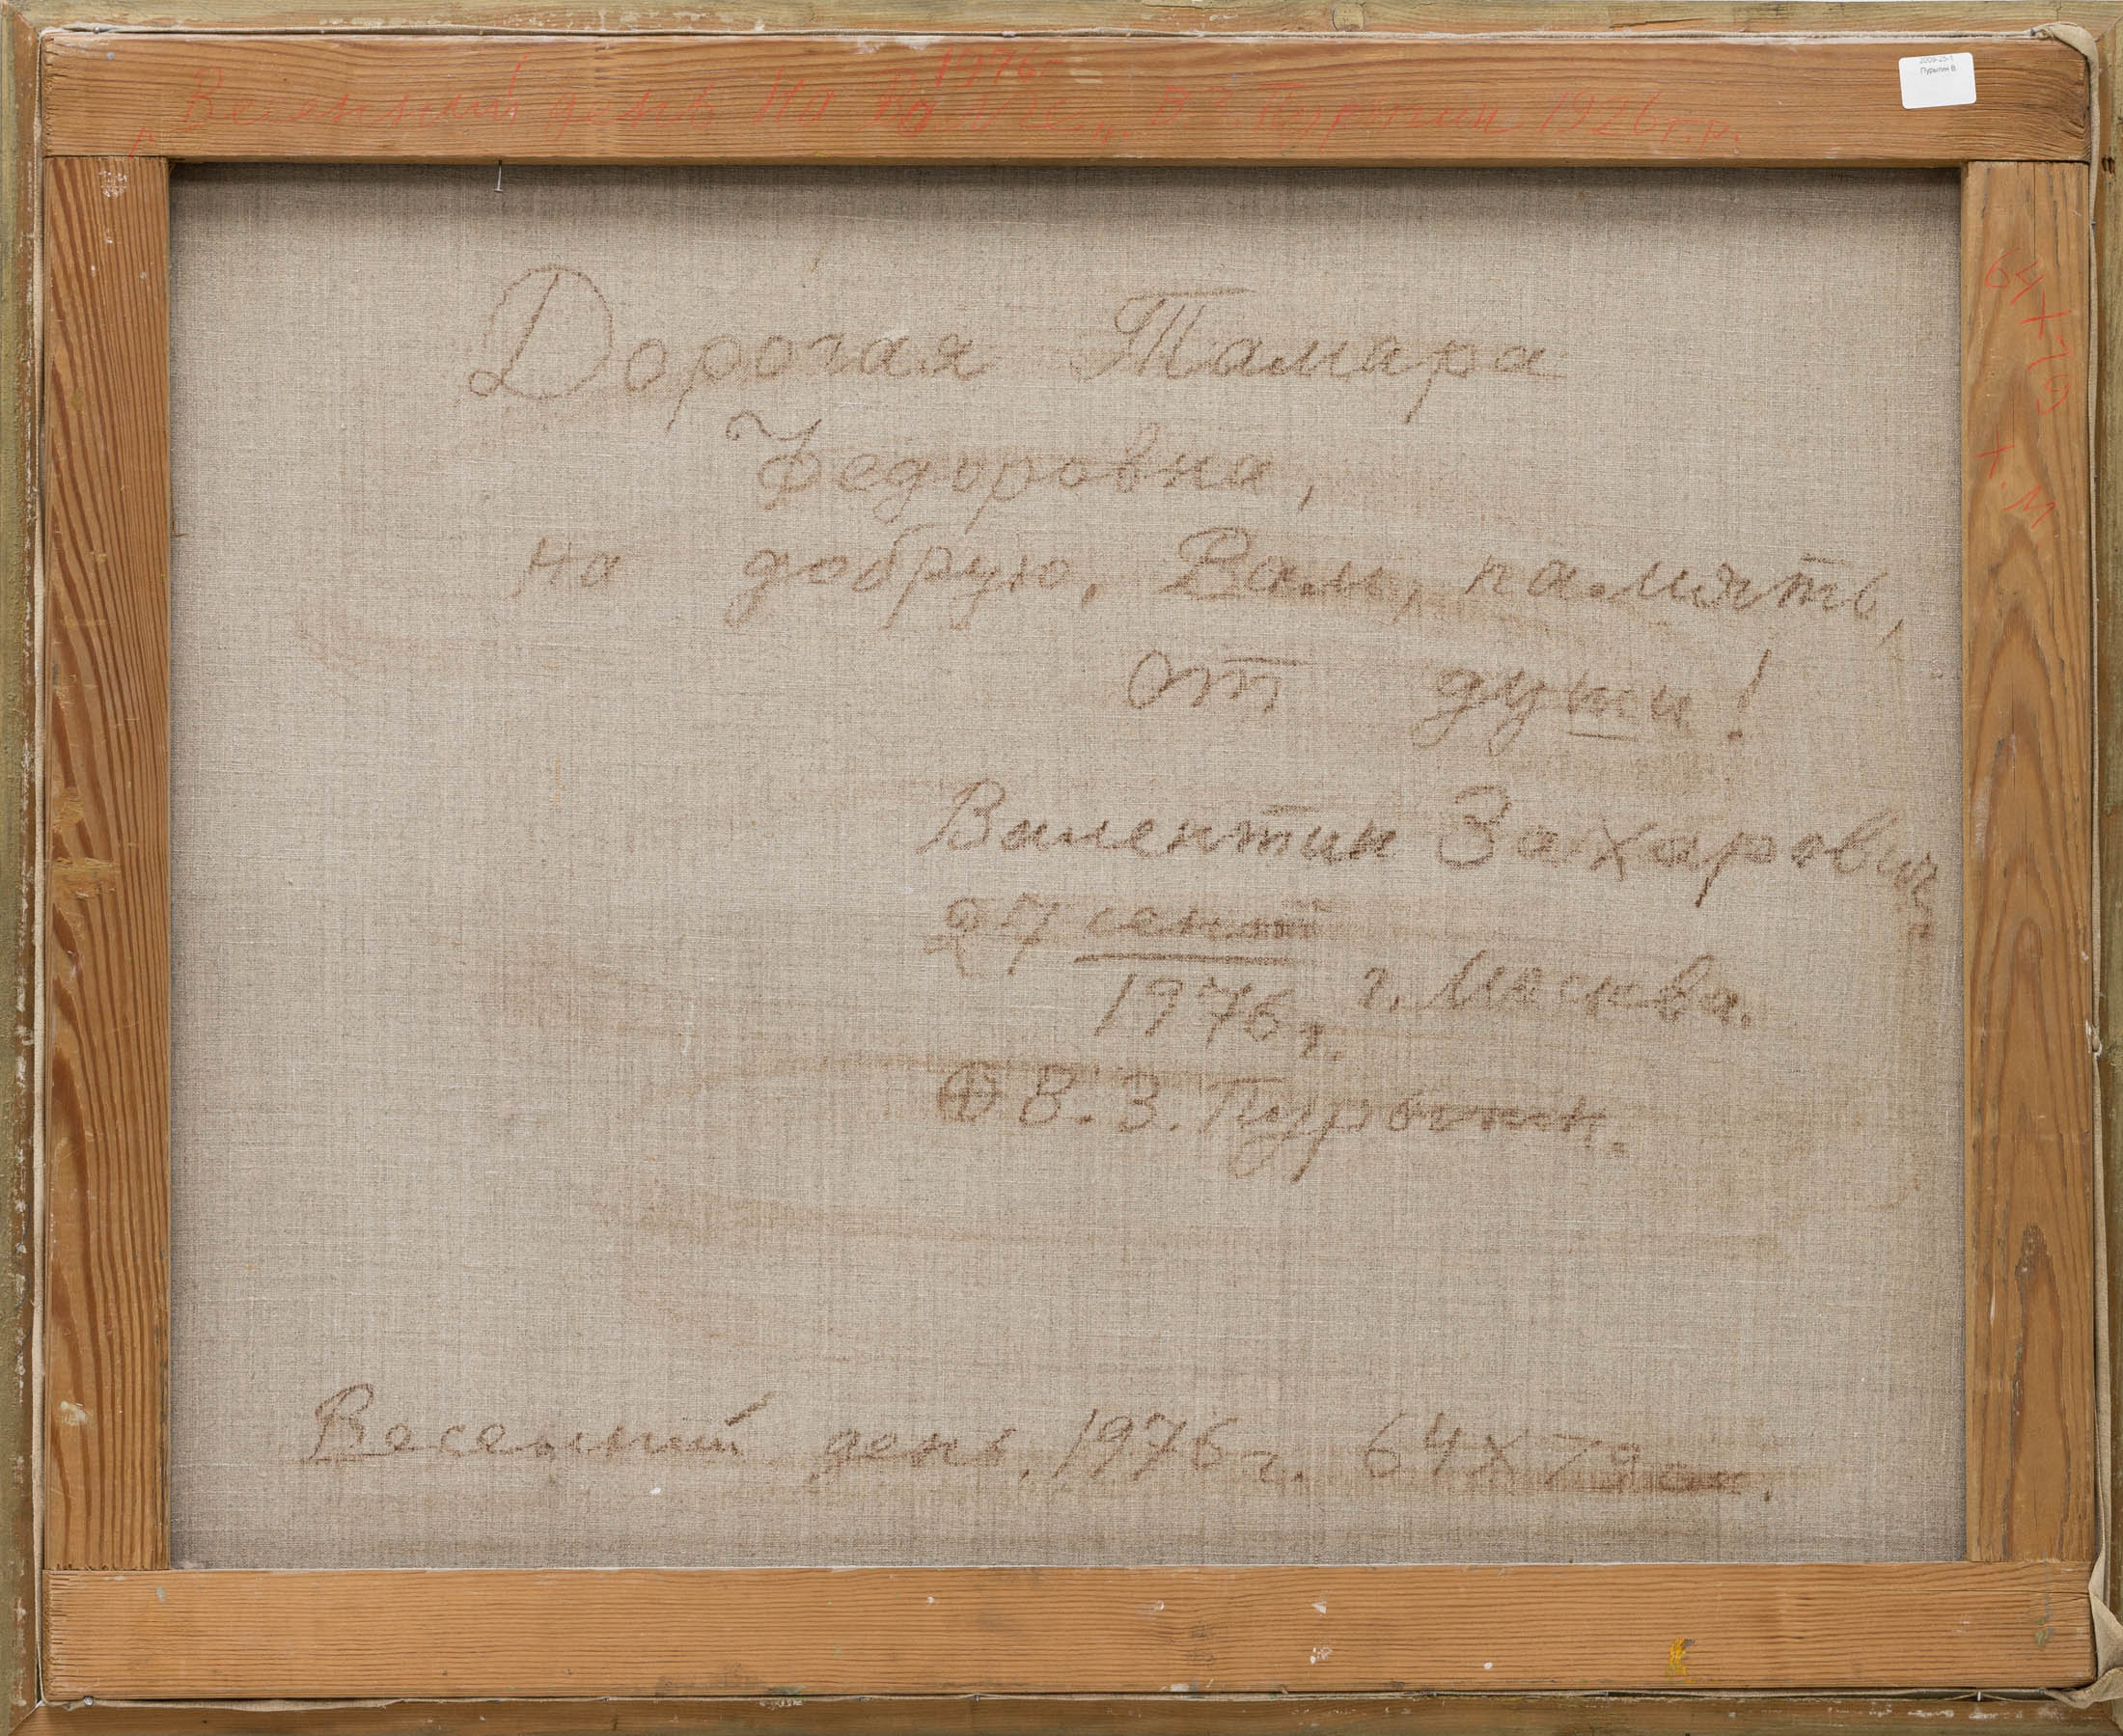 1976г
Весенний день на Волге". В.З. Пурыгин 1926 г.р.
2009-25-1
Пурыгин В
64х79
х.м
Дорогая Тамара
Федоровна,
на добрую, Вам, память,
от души!
Валентин Захарович
27 сент
1976 г. г. Москва.
В. З. Пурыгин.
Весенний день. 1976 г. 64х79 см.